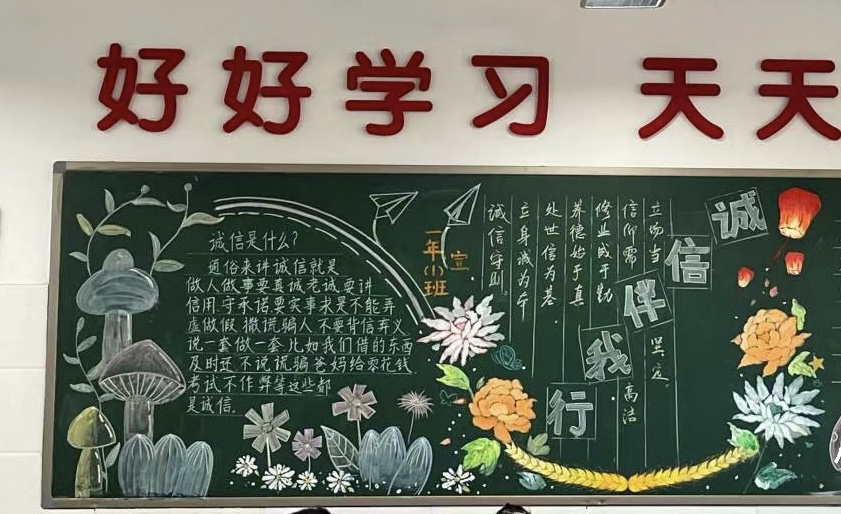 好好学习 天天
诚信是什么?
通俗来讲诚信就是
做人做事要真诚老诚要讲
信用.守承诺要实事求是不能弄
虚做假.撒谎骗人.不要背信弃义
说一套做一套.比如我们借的东西
及时还.不说谎骗爸妈给零花钱
考试不作弊等这些都
是诚信.
一年(1)班
宣
诚信伴我行
立场当坚定。
信仰需高洁
修业成于勤
养德始于真
处世信为基.
立身诚为本
诚信守